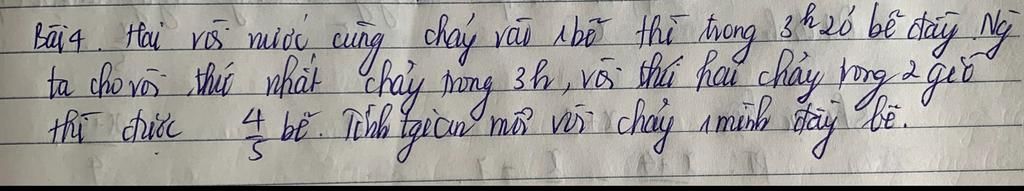 Bài 4. Hai vòi nước cùng chảy vào 1 bể thì trong 3h20' bể đầy. Ng
ta cho vòi thứ nhất chảy trong 3h, vòi thứ hai chảy trong 2 giờ
thì được 4/5 bể. Tính tgian mỗi vòi chảy 1 mình đầy bể.